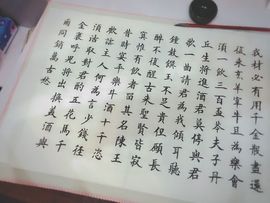 我材必有用千金散盡還
復來烹羊宰牛且為樂會
須一飲三百盃岑夫子丹
丘生將進酒君莫停與君
歌一曲請君為我傾耳聽
鐘鼓饌玉不足貴但願長
醉不復醒古來聖賢皆寂
寞惟有飲者留其名陳王
昔時宴平樂斗酒十千恣
歡謔主人何為言少錢徑
須沽取對君酌五花馬千
金裘呼兒將出換美酒與
爾同銷萬古愁